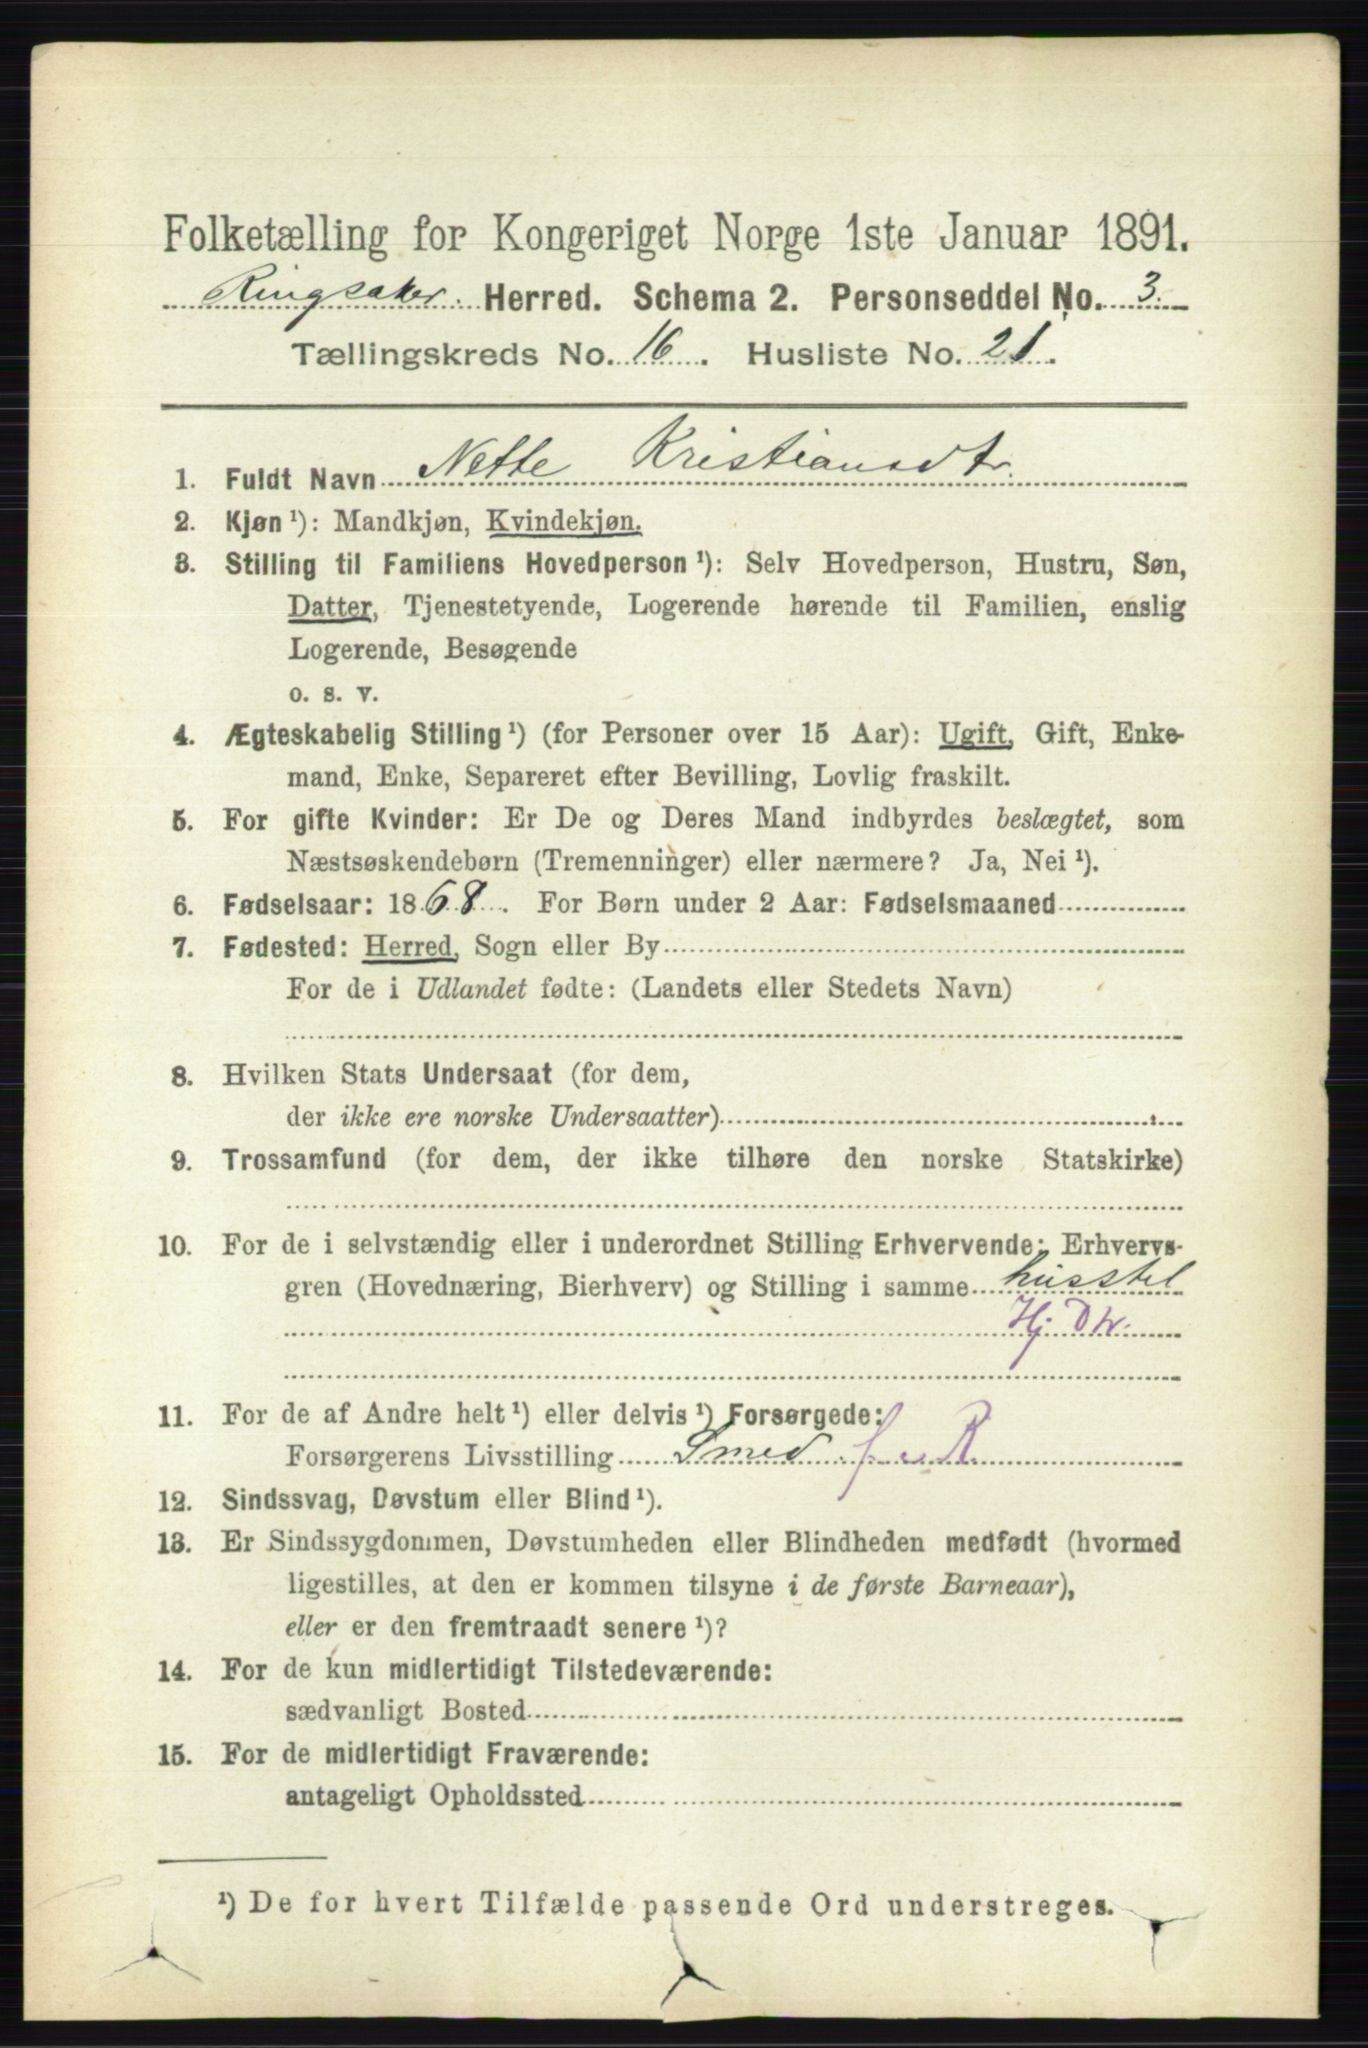 Folketælling for Kongeriget Norge 1ste Januar 1891.
Ringsaker Herred. Schema 2. Personseddel No. 3.
Tællingskreds No. 16. Husliste No. 21.
1. Fuldt Navn Nette Kristiansdtr.
2. Kjøn ¹): Mandkjøn, Kvindekjøn.
3. Stilling til Familiens Hovedperson ¹): Selv Hovedperson, Hustru, Søn,
Datter, Tjenestetyende, Logerende hørende til Familien, enslig
Logerende, Besøgende
o. s. v.
4. Ægteskabelig Stilling ¹) (for Personer over 15 Aar): Ugift, Gift, Enke-
mand, Enke, Separeret efter Bevilling, Lovlig fraskilt.
5. For gifte Kvinder: Er De og Deres Mand indbyrdes beslægtet, som
Næstsøskendebørn (Tremenninger) eller nærmere? Ja, Nei ¹).
6. Fødselsaar: 1868. For Børn under 2 Aar: Fødselsmaaned
7. Fødested: Herred, Sogn eller By
For de i Udlandet fødte: (Landets eller Stedets Navn)
8. Hvilken Stats Undersaat (for dem,
der ikke ere norske Undersaatter)
9. Trossamfund (for dem, der ikke tilhøre den norske Statskirke)
10. For de i selvstændig eller i underordnet Stilling Erhvervende: Erhvervs-
gren (Hovednæring, Bierhverv) og Stilling i samme husstel
Hj. Dtr.
11. For de af Andre helt ¹) eller delvis ¹) Forsørgede:
Forsørgerens Livsstilling Smed R
12. Sindssvag, Døvstum eller Blind ¹).
13. Er Sindssygdommen, Døvstumheden eller Blindheden medfødt (hvormed
ligestilles, at den er kommen tilsyne i de første Barneaar),
eller er den fremtraadt senere ¹)?
14. For de kun midlertidigt Tilstedeværende:
sædvanligt Bosted
15. For de midlertidigt Fraværende:
antageligt Opholdssted
¹) De for hvert Tilfælde passende Ord understreges.